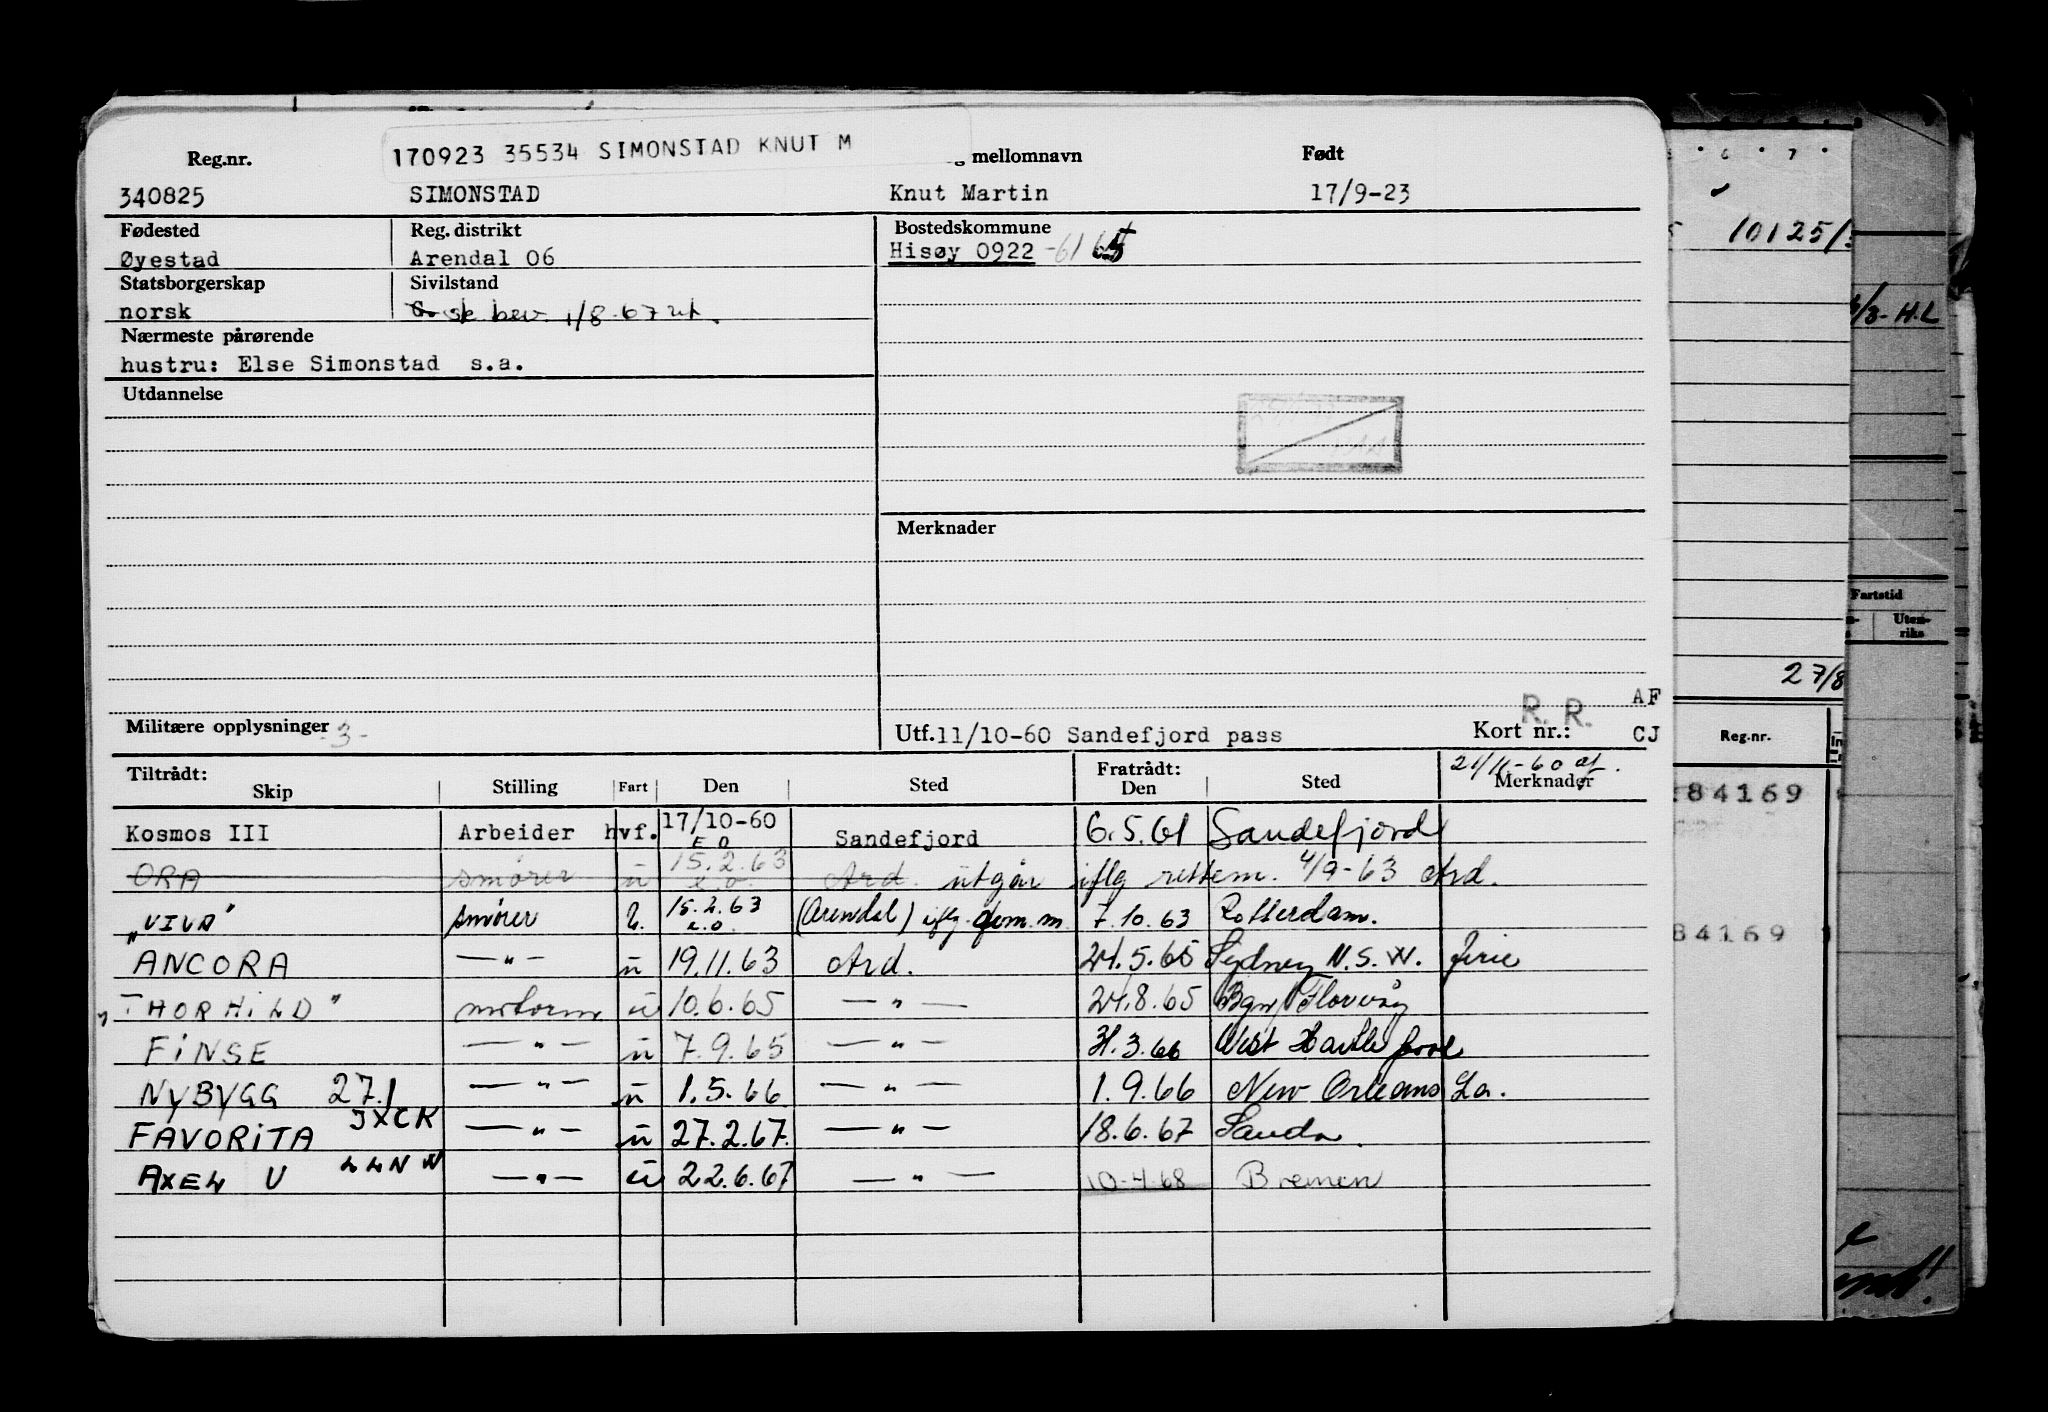 170923 35534 SIMONSTAD KNUT M
Reg.nr. mellomnavn Født
340825 SIMONSTAD Knut Martin 17/9-23
Fødested Reg. distrikt Bostedskommune
Øyestad Arendal 06 Hisøy 0922 -61
Statsborgerskap Sivilstand
norsk bev. 1/8-67
Nærmeste pårørende
hustru: Else Simonstad s.a.
Utdannelse
Merknader
R. R. AF
Militære opplysninger -3- Utf.11/10-60 Sandefjord pass Kort nr.: CJ
Tiltrådt: Fratrådt: 21/11-60
Skip Stilling Fart Den Sted Den Sted Merknader
Kosmos III Arbeider hvf. 17/10-60 Sandefjord 6.5.61 Sandefjord
ORA smører u 15.2.63 Ard. utgår iflg rettem. 4/9-63 Ard.
„VIVA" smører u. 15.2.63 (Arendal) iflg. 7.10.63 Rotterdam.
ANCORA —"— u 19.11.63 Ard. 24.5.65 Sydney N.S.W. ferie
"THORHILD" motorm u 10.6.65 —"— 24.8.65 Bgn/Florvåg
FINSE —"— u 7.9.65 —"— 31.3.66 West Hartlepool
NYBYGG 27.1 —"— u 1.5.66 —"— 1.9.66 New Orleans La.
FAVORITA JXCK —"— u 27.2.67. —"— 18.6.67 Sauda.
AXEL U LLNW —"— u 22.6.67 —"— 10-4-68 Bremen
6 7
10125/
/3- H.L
Fartstid
Uten-
riks
27/8
Reg.nr.
84169
84169